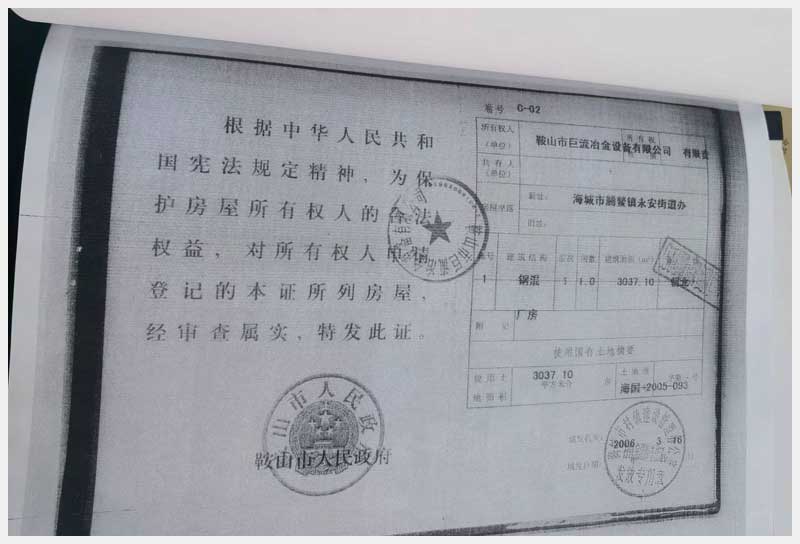 根据中华人民共和
国宪法规定精神，为保
护房屋所有权人的合法
权益，对所有权人申请
登记的本证所列房屋，
经审查属实，特发此证。
鞍山市人民政府
卷号 G-02
所有权人
(单位)
鞍山市巨流冶金设备有限公司 有限责
共有人
(单位)
海城市腾鳌镇永安街道办
建筑结构 层次 间数 建筑面积 (m²)
1 钢混 1 1.0 3037.10
附记
厂房
使用国有土地摘要
使用土
地面积
3037.10
平方米
土地证
海国 2005-093
填发机关
填发日期
2006 3 16
发放专用章